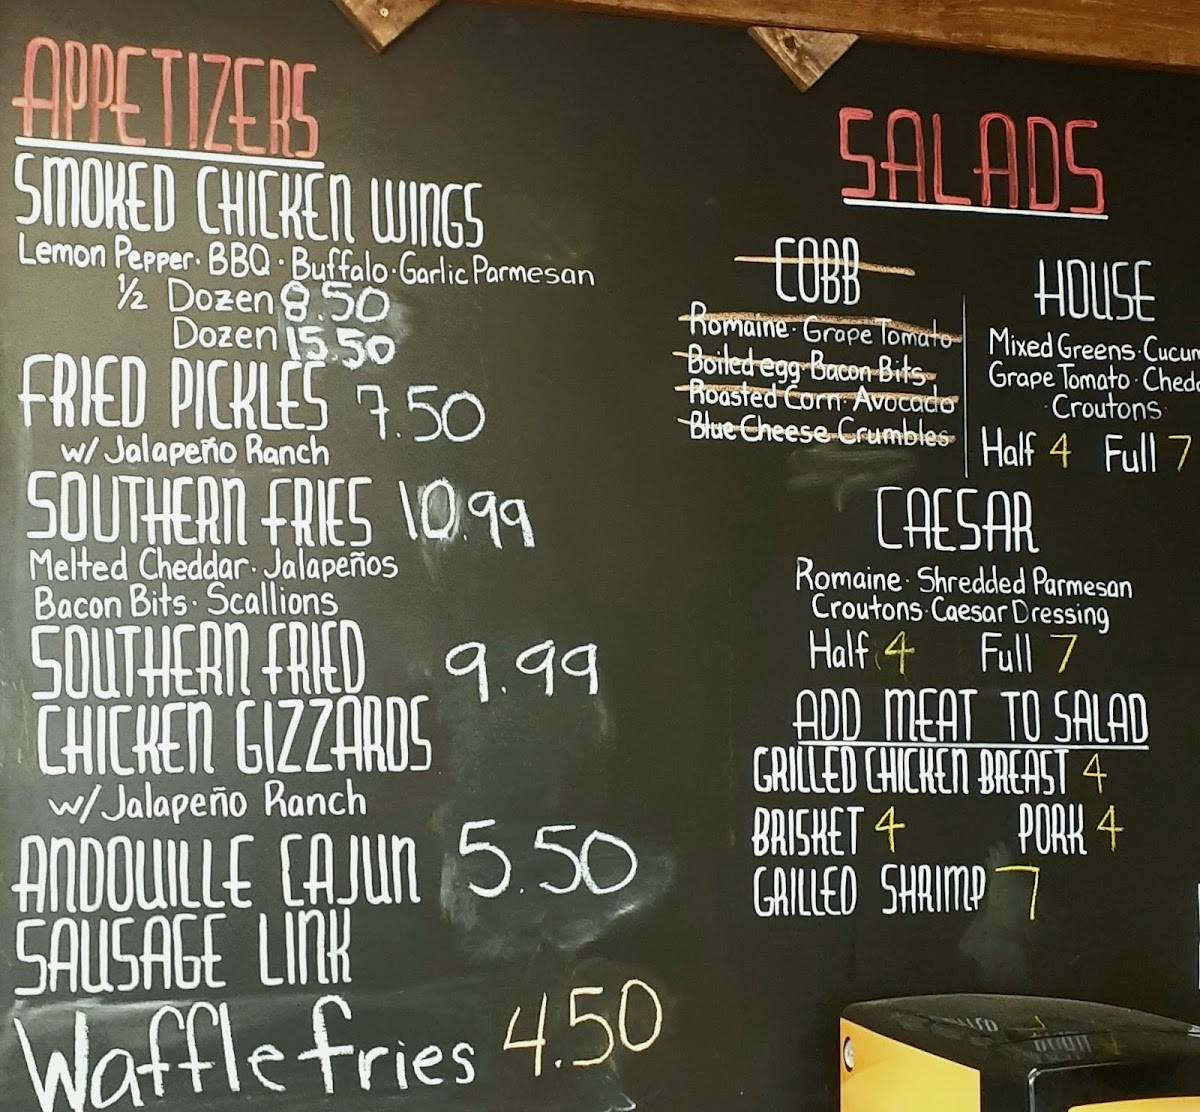 APPETIZERS
SMOKED CHICKEN WINGS
Lemon Pepper · BBQ · Buffalo · Garlic Parmesan
½ Dozen 8.50
Dozen 15.50
FRIED PICKLES 7.50
w/ Jalapeño Ranch
SOUTHERN FRIES 10.99
Melted Cheddar · Jalapeños
Bacon Bits · Scallions
SOUTHERN FRIED 9.99
CHICKEN GIZZARDS
w/ Jalapeño Ranch
ANDOUILLE CAJUN 5.50
SAUSAGE LINK
Waffle fries 4.50
SALADS
COBB
Romaine · Grape Tomato
Boiled egg · Bacon Bits
Roasted Corn · Avocado
Blue Cheese Crumbles
HOUSE
Mixed Greens · Cucum
Grape Tomato · Chedd
· Croutons ·
Half 4 Full 7
CAESAR
Romaine · Shredded Parmesan
Croutons · Caesar Dressing
Half 4 Full 7
ADD MEAT TO SALAD
GRILLED CHICKEN BREAST 4
BRISKET 4 PORK 4
GRILLED SHRIMP 7